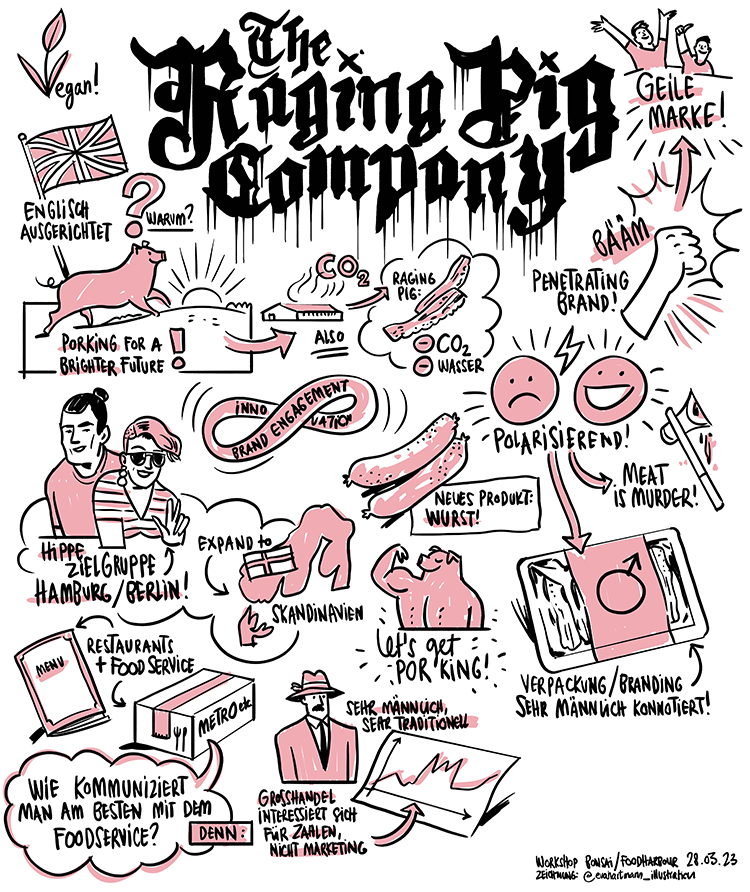 The
Raging Pig
Company
Vegan!
GEILE
MARKE!
ENGLISCH
AUSGERICHTET
?
WARUM?
BÄÄM
PENETRATING
BRAND!
PORKING FOR A
BRIGHTER FUTURE!
CO2
ALSO
RAGING
PIG:
- CO2
- WASSER
INNOVATION
BRAND ENGAGEMENT
POLARISIEREND!
MEAT
IS MURDER!
NEUES PRODUKT:
WURST!
HIPPE
ZIELGRUPPE
HAMBURG/BERLIN!
EXPAND to
SKANDINAVIEN
let's get
PORKING!
VERPACKUNG/BRANDING
SEHR MÄNNLICH KONNOTIERT!
RESTAURANTS
+ FOOD SERVICE
MENU
METRO etc.
SEHR MÄNNLICH,
SEHR TRADITIONELL
WIE KOMMUNIZIERT
MAN AM BESTEN MIT DEM
FOODSERVICE?
DENN:
GROSSHANDEL
INTERESSIERT SICH
FÜR ZAHLEN,
NICHT MARKETING
WORKSHOP BONSAI/FOODHARBOUR 28.03.23
ZEICHNUNG: @evahartmann_illustration